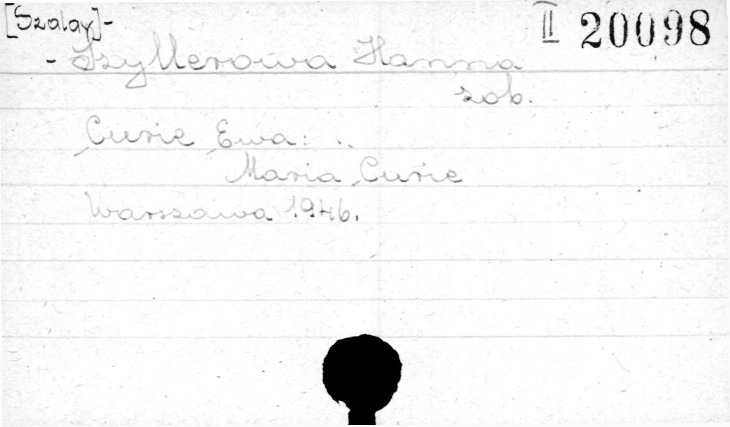 [Szalay]- II 20098
- Szyllerowa Hanna
zob.
Curie Ewa: ..
Maria Curie
Warszawa 1946.